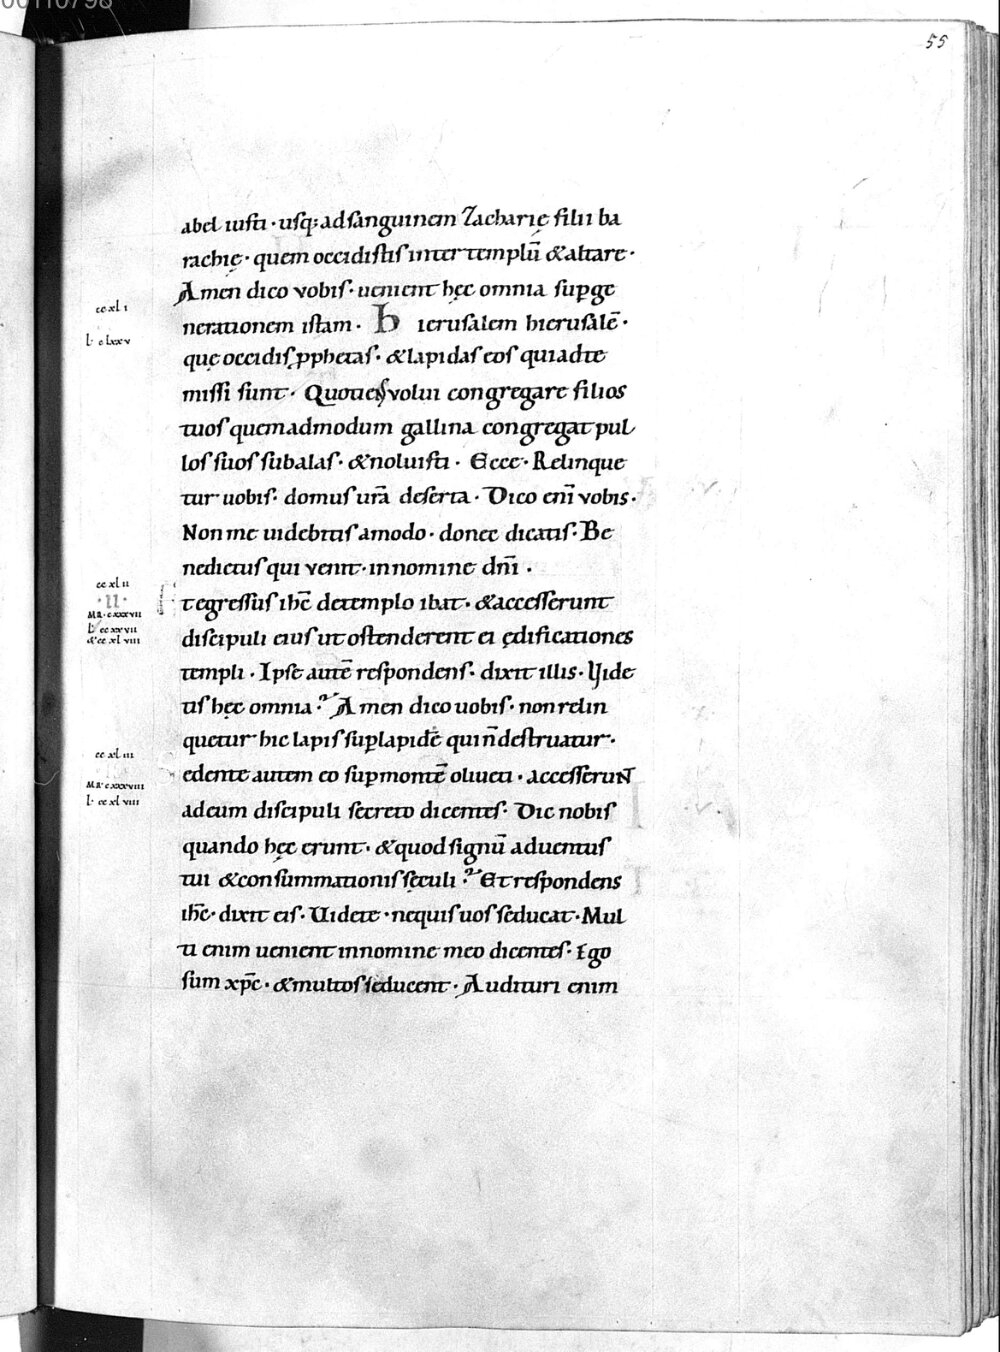 00110798
55
abel iusti · usq; ad sanguinem Zacharię filii ba
rachię · quem occidistis inter templū & altare ·
Amen dico vobis · uenient hęc omnia sup ge
nerationem istam · Hierusalem hierusalē ·
ccxli
l · clxxv
quę occidis pphetas · & lapidas eos qui ad te
missi sunt · Quotiens volui congregare filios
tuos quemadmodum gallina congregat pul
los suos sub alas · & noluisti · Ecce · Relinque
tur uobis · domus urā deserta · Dico enī vobis ·
Non me uidebitis amodo · donec dicatis · Be
nedictus qui venit · in nomine dnī ·
ccxlii
· II ·
MR · cxxxvii
l · ccxxvii
& ccxlviii
Et egressus ihc̄ de templo ibat · & accesserunt
discipuli eius ut ostenderent ei ędificationes
templi · Ipse autē respondens · dixit illis · Vide
tis hęc omnia ? Amen dico uobis · non relin
quetur hic lapis sup lapidē qui n̄ destruatur ·
ccxliii
MR · cxxxviii
l · ccxlviii
Sedente autem eo sup montē oliueti · accesserunt
ad eum discipuli secreto dicentes · Dic nobis
quando hęc erunt · & quod signū aduentus
tui & consummationis sęculi ? Et respondens
ihc̄ · dixit eis · Uidete · nequis uos seducat · Mul
ti enim uenient in nomine meo dicentes · Ego
sum xpc̄ · & multos seducent · Audituri enim